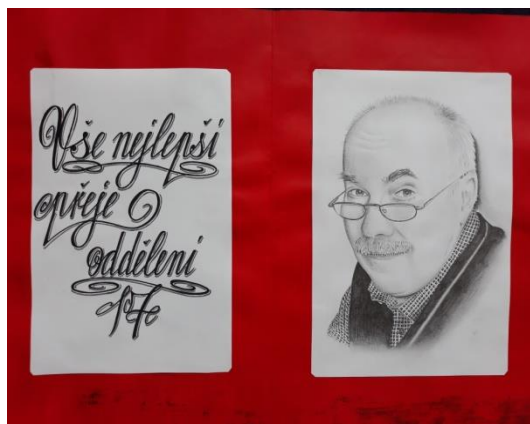 Vše nejlepší
přeje
oddělení